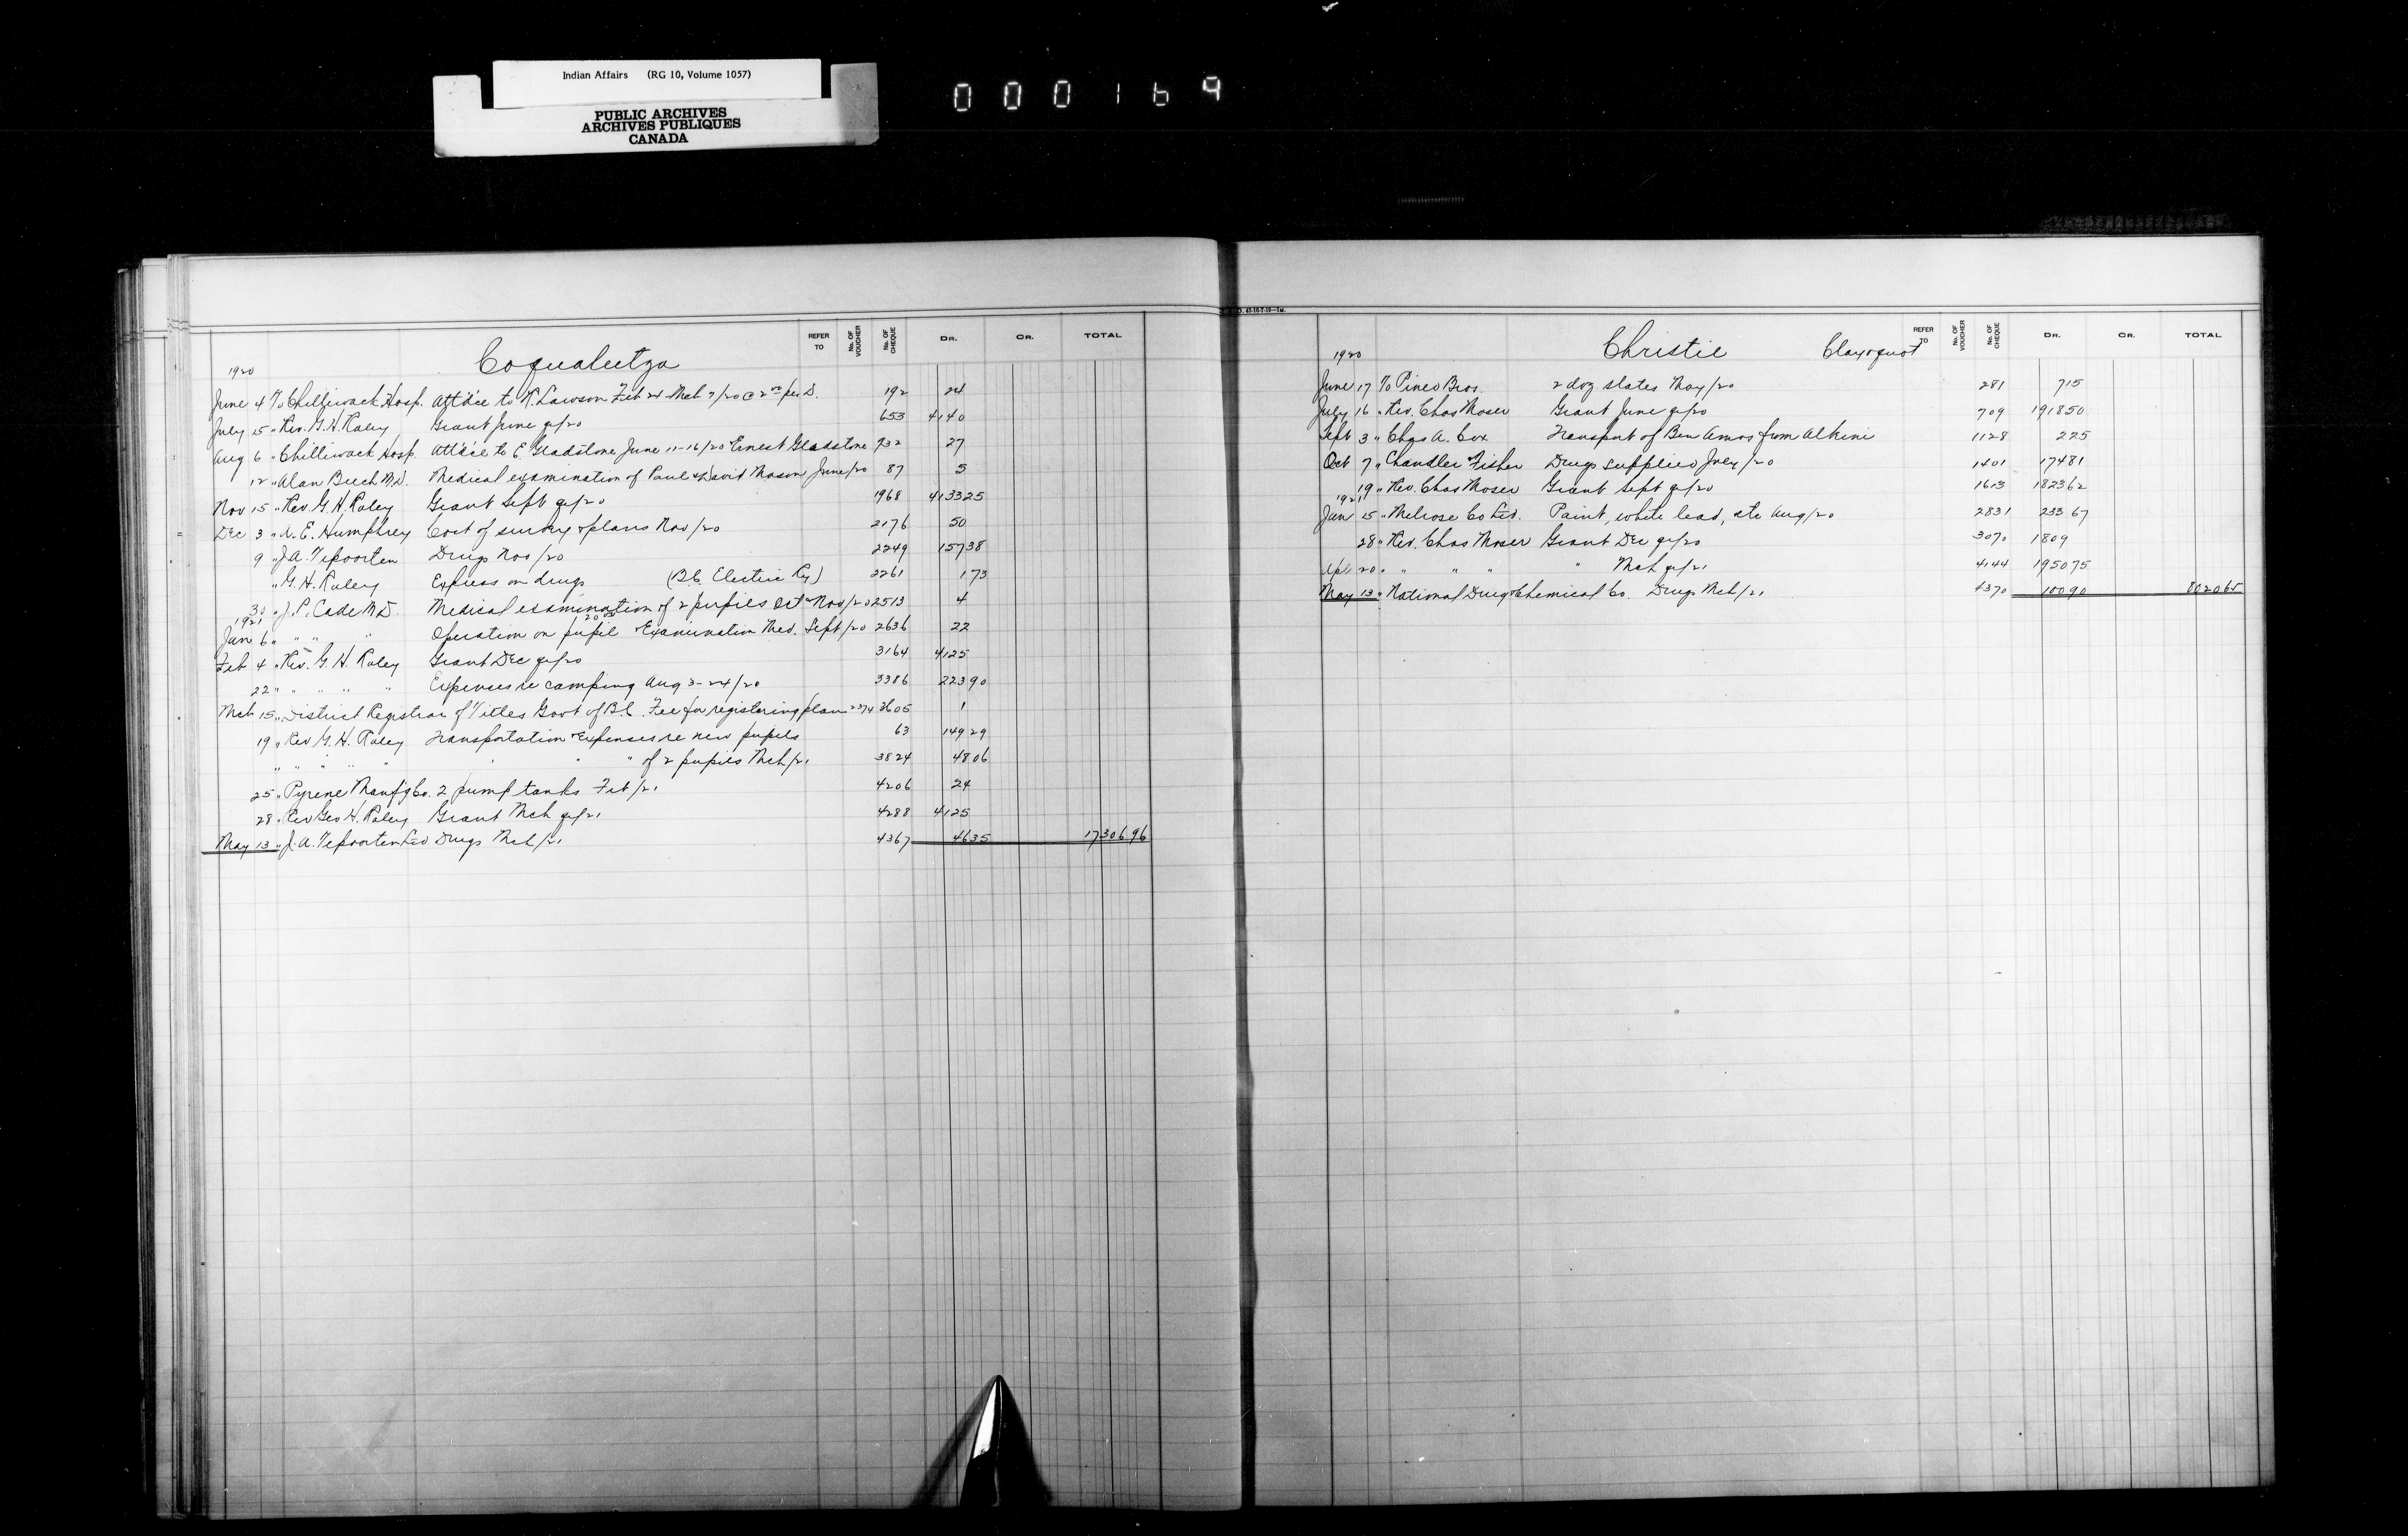 Indian Affairs (RG 10, Volume 1057)
PUBLIC ARCHIVES
ARCHIVES PUBLIQUES
CANADA
000169
REFER TO No. OF VOUCHER No. OF CHEQUE DR. CR. TOTAL
1920 Coqualeetza
June 4 To Chilliwack Hosp. Att'dce to R. Lawson Feb 24 Mch 7/20 @ 2 00 per D. 192 24
July 15 " Rev. G. H. Raley Grant June qr/20 653 4140
Aug 6 " Chilliwack Hosp. Att'dce to E. Gladstone June 11-16/20 & Ernest Gladstone 932 27
12 " Alan Beech M.D. Medical examination of Paul & David Mason June/20 87 5
Nov 15 " Rev. G. H. Raley Grant Sept qr/20 1968 4133 25
Dec 3 " A. E. Humphrey Cost of survey & plans Nov/20 2176 50
9 " J. A. Tepoorten Drugs Nov/20 2249 157 38
" G. H. Raley Express on drugs (B.C. Electric Ry) 2261 1 73
30 " J. P. Cade M.D. Medical examination of 2 pupils Oct & Nov/20 2513 4
1921
Jan 6 " " " " Operation on pupil 20 00 & Examination Med. Sept/20 2636 22
Feb 4 " Rev. G. H. Raley Grant Dec qr/20 3164 4125
22 " " " " " Expenses re camping Aug 3-24/20 3386 223 90
Mch 15 " District Registrar of Titles Govt of B.C. Fee for registering plan 2374 3605 1
19 " Rev G. H. Raley Transportation & Expenses re new pupils 63 149 29
" " " " " " " " of 2 pupils Mch/21 3824 48 06
25 " Pyrene Manfg Co. 2 pump tanks Feb/21 4206 24
28 " Rev Geo H. Raley Grant Mch qr/21 4288 4125
May 13 " J. A. Tepoorten Ltd Drugs Mch/21 4367 46 35 17306 96
REFER TO No. OF VOUCHER No. OF CHEQUE DR. CR. TOTAL
1920 Christie Clayoquot
June 17 To Pineo Bros. 2 doz. slates May/20 281 7 15
July 16 " Rev. Chas Moser Grant June qr/20 709 1918 50
Sept 3 " Chas A. Cox Transport of Ben Amos from Alberni 1128 2 25
Oct 7 " Chandler & Fisher Drugs supplied July/20 1401 174 81
19 " Rev. Chas Moser Grant Sept qr/20 1613 1823 62
1921
Jan 15 " Melrose Co Ltd. Paint, white lead, etc Aug/20 2831 233 67
28 " Rev. Chas Moser Grant Dec qr/20 3070 1809
Apl 20 " " " " " Mch qr/21 4144 1950 75
May 13 " National Drug & Chemical Co. Drugs Mch/21 4370 100 90 8020 65